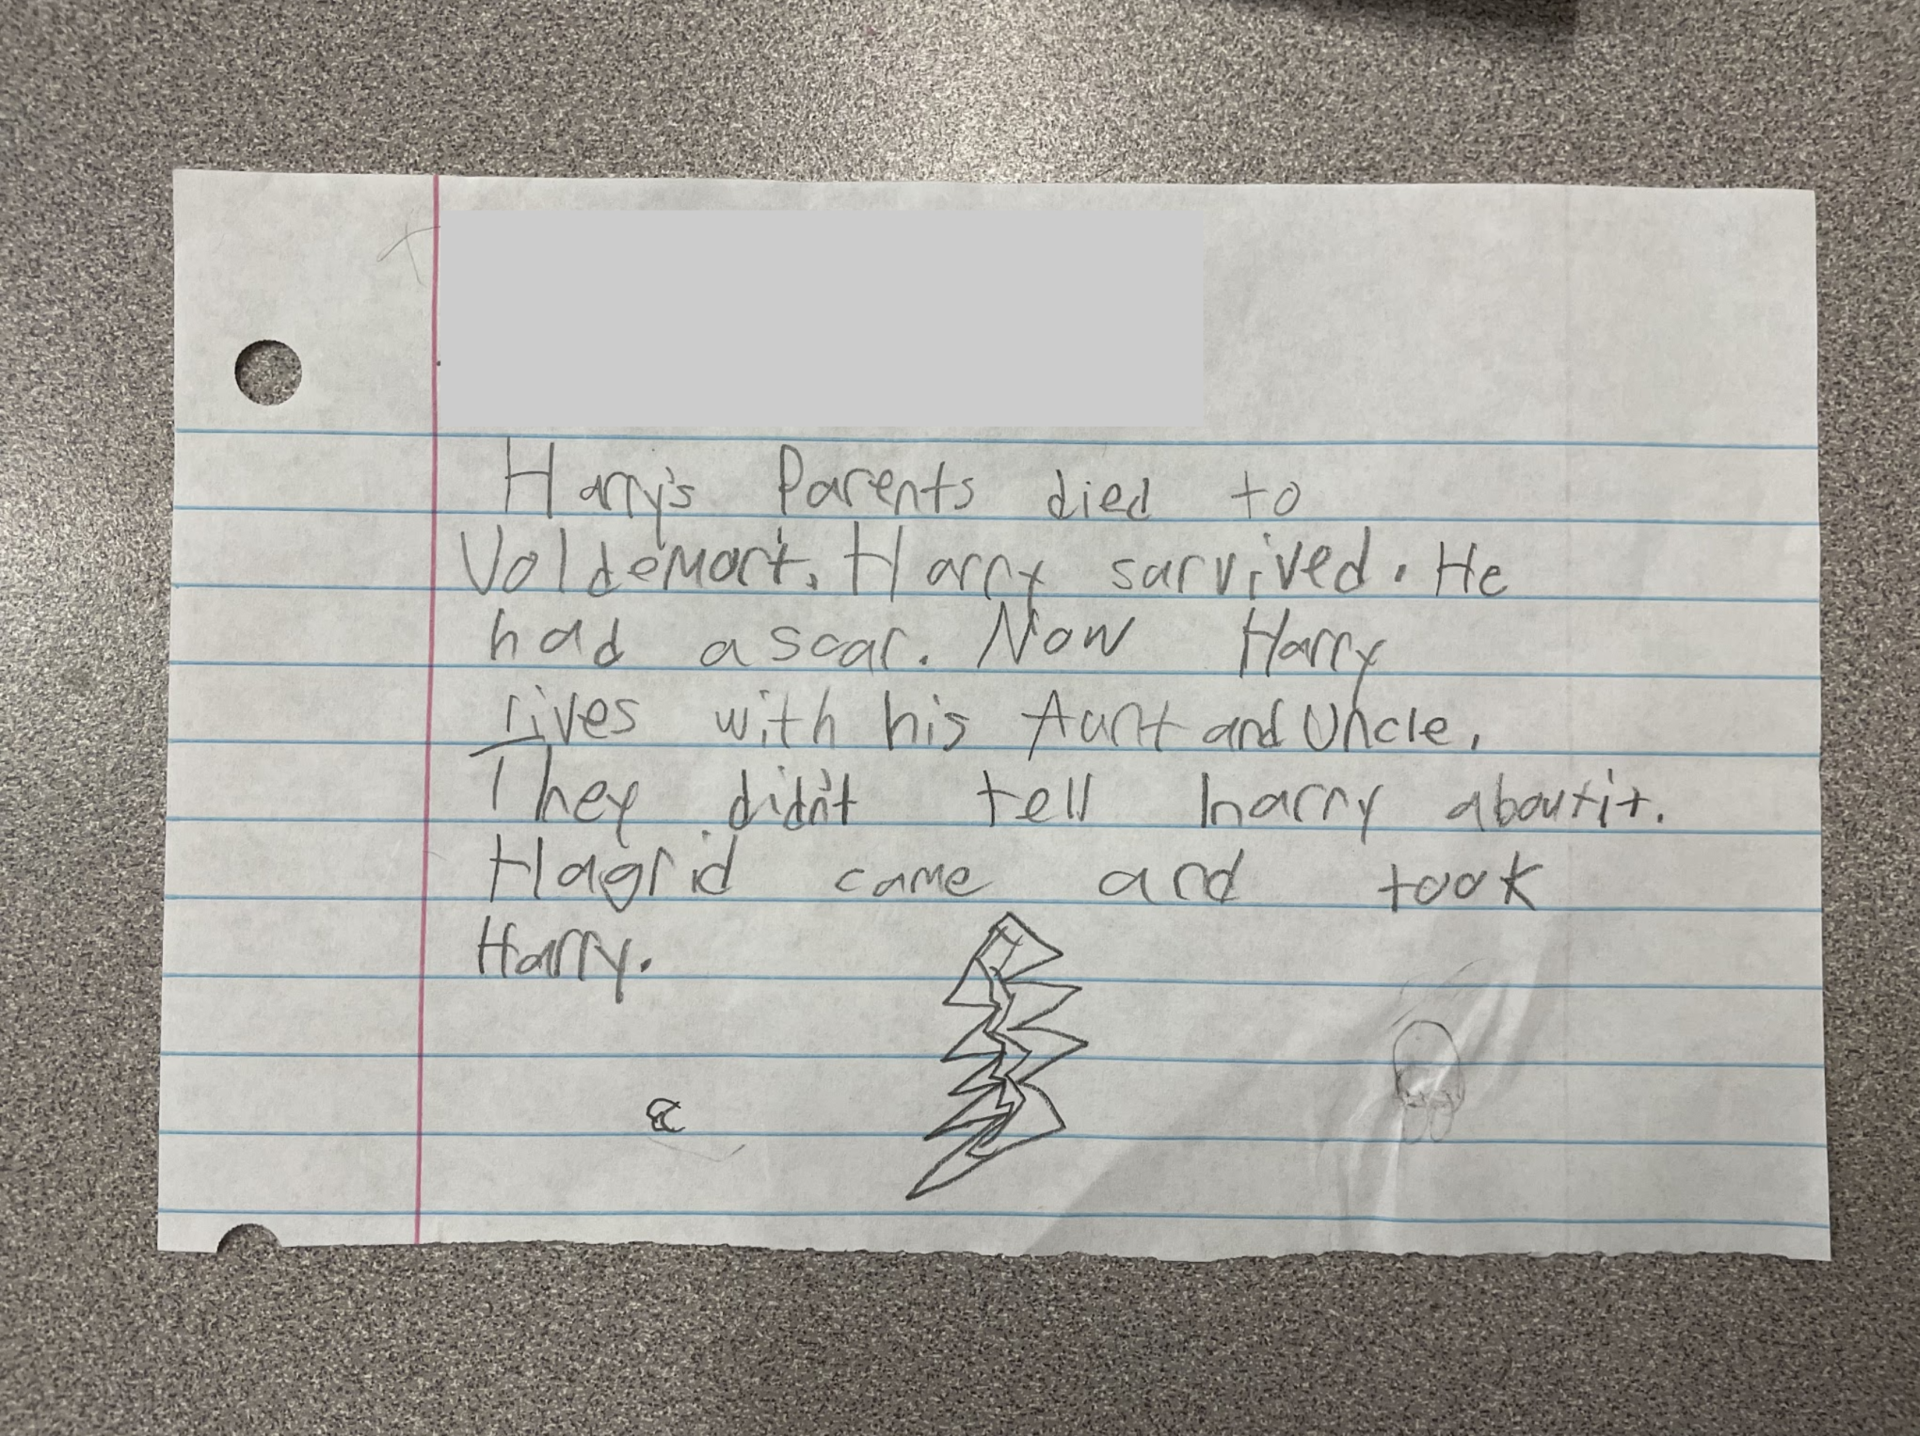 Harry's Parents died to
Voldemort. Harry survived. He
had a scar. Now Harry
lives with his Aunt and Uncle.
They didn't tell harry about it.
Hagrid came and took
Harry.